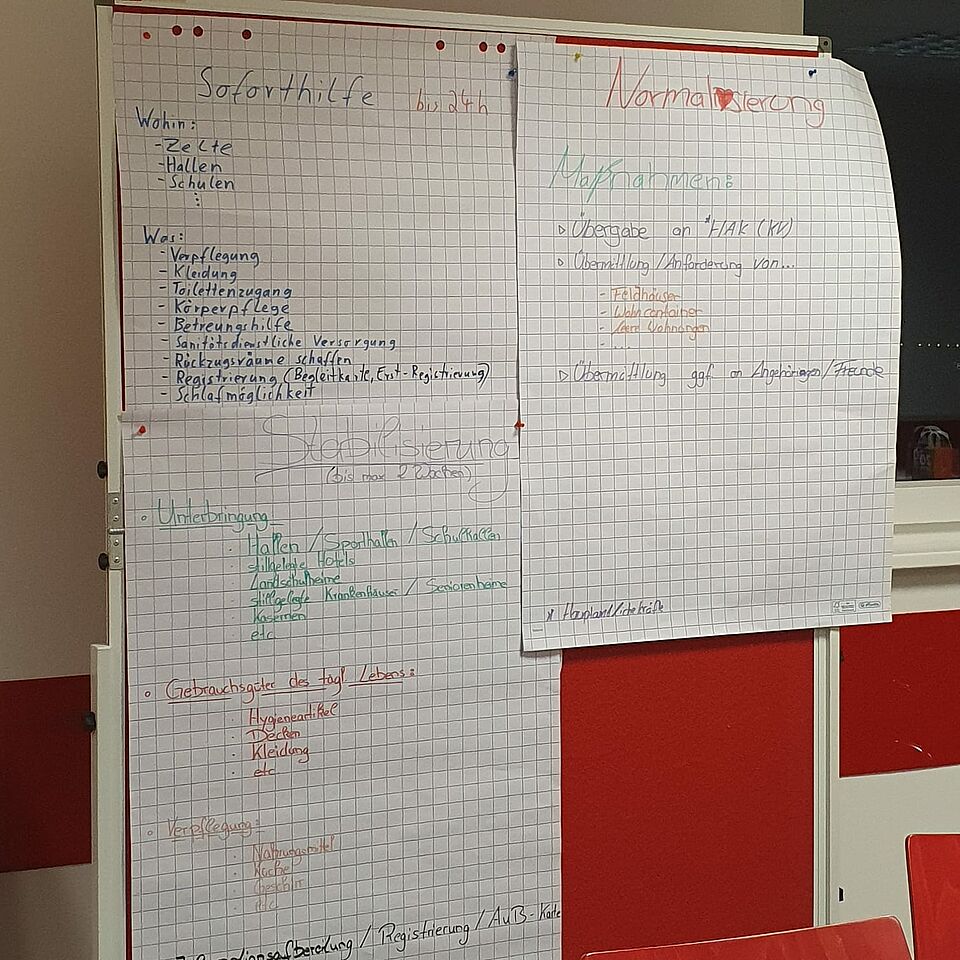 Soforthilfe bis 24h
Wohin:
- Zelte
- Hallen
- Schulen
⋮
Was:
- Verpflegung
- Kleidung
- Toilettenzugang
- Körperpflege
- Betreungshilfe
- Sanitätsdienstliche Versorgung
- Rückzugsräume schaffen
- Registrierung (Begleitkarte, Erst-Registrierung)
- Schlafmöglichkeit
Stabilisierung
(bis max 2 Wochen)
Unterbringung
· Hallen / Sporthallen / Schulhallen
· stillgelegte Hotels
· Landschulheime
· stillgelegte Krankenhäuser / Seniorenheime
· Kasernen
· etc
Gebrauchsgüter des tägl. Lebens:
· Hygieneartikel
· Decken
· Kleidung
· etc
Verpflegung:
· Nahrungsmittel
· Küche
· Geschirr
· etc
/ Registrierung / AuB-Karte
Normalisierung
Maßnahmen:
▷ Übergabe an *HAK (KV)
▷ Übermittlung / Anforderung von...
- Feldhäuser
- Wohncontainer
- leere Wohnungen
- ...
▷ Übermittlung ggf. an Angehörigen / Freunde